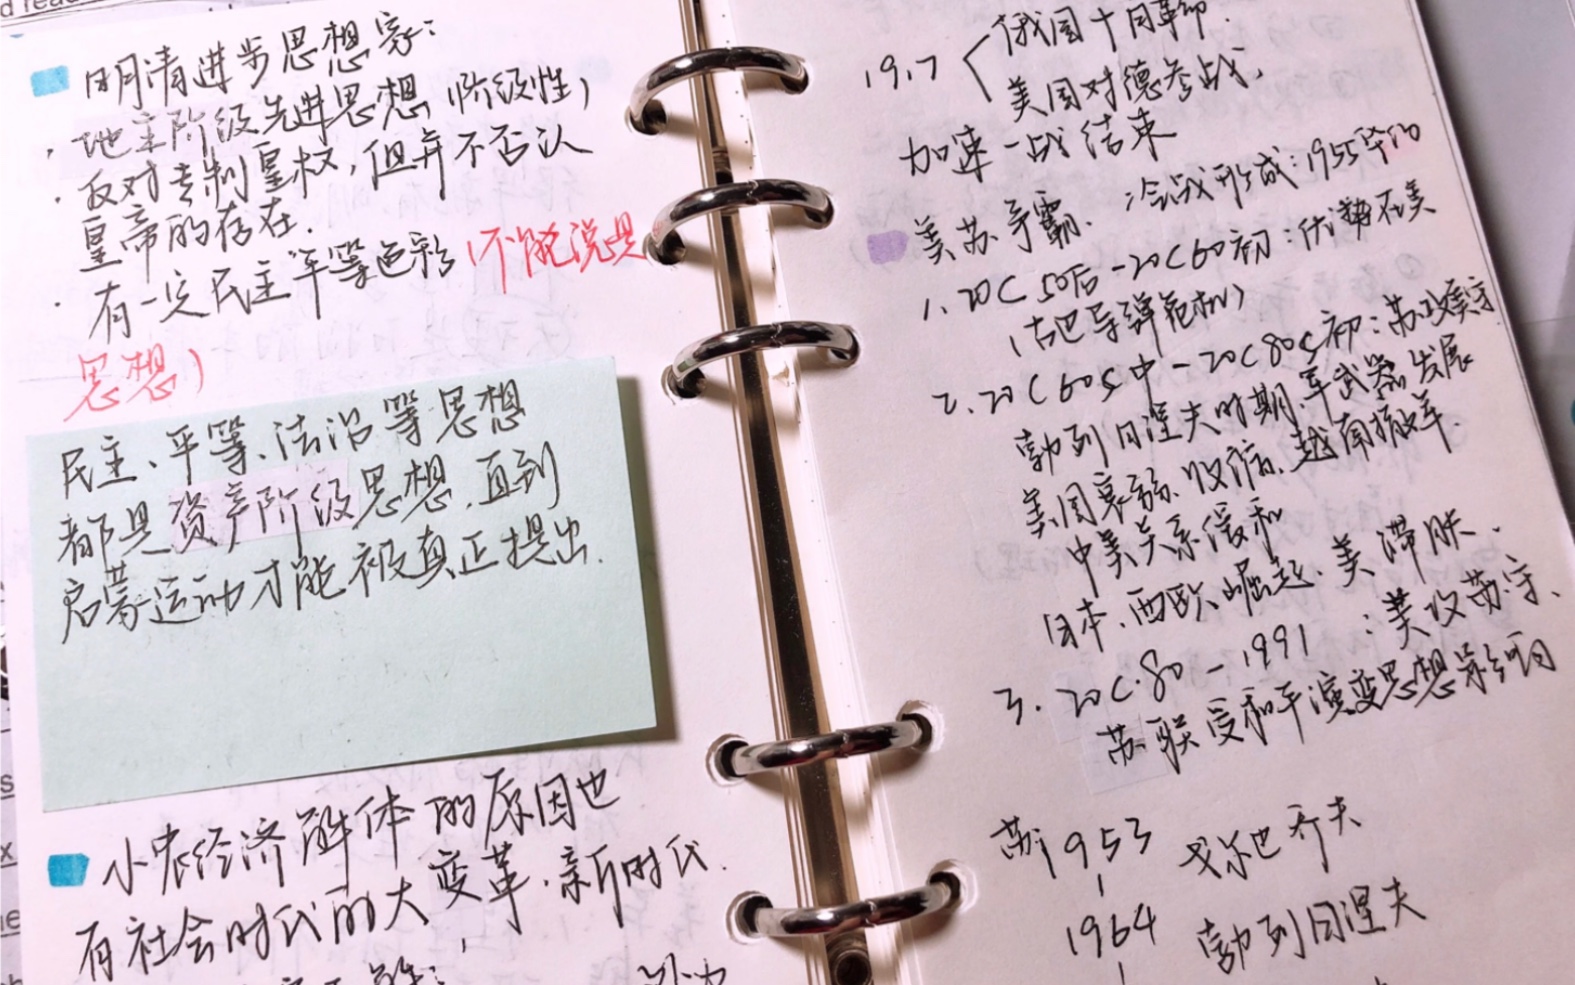 明清进步思想家：
· 地主阶级先进思想（阶级性）
· 反对专制皇权，但并不否认
皇帝的存在.
· 有一定民主平等色彩（不能说是
思想）
民主、平等、法治等思想
都是资产阶级思想.直到
启蒙运动才能被真正提出.
小农经济解体的原因也
有社会时代的大变革.新时代.
俄国十月革命.
1917
美国对德参战、
加速一战结束
美苏争霸. 冷战形成：1955华约
1. 20C 50后-20C60初：优势在美
（古巴导弹危机）
2. 20C 60s中-20C 80s初：苏攻美守
勃列日涅夫时期.军武器发展
美国衰弱、收缩、越南撤军.
中美关系缓和
日本、西欧崛起、美滞胀.
3. 20C.80-1991 ：美攻苏守、
苏联受和平演变思想影响
苏1953 戈尔巴乔夫
1964 勃列日涅夫